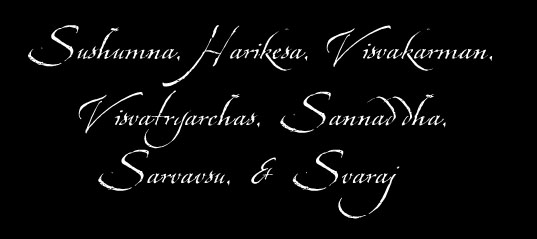 Sushumna, Harikesa, Visvakarman,
Visvatryarchas, Sannaddha,
Sarvavsu, & Svaraj